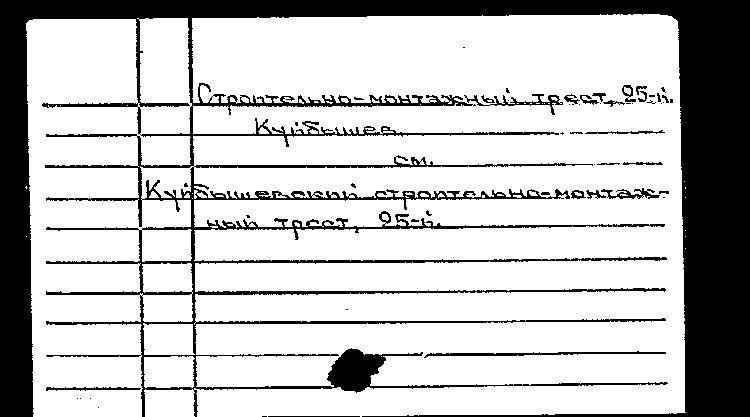 Строительно-монтажный трест, 25-й.
Куйбышев.
см.
Куйбышевский строительно-монтаж-
ный трест, 25-й.